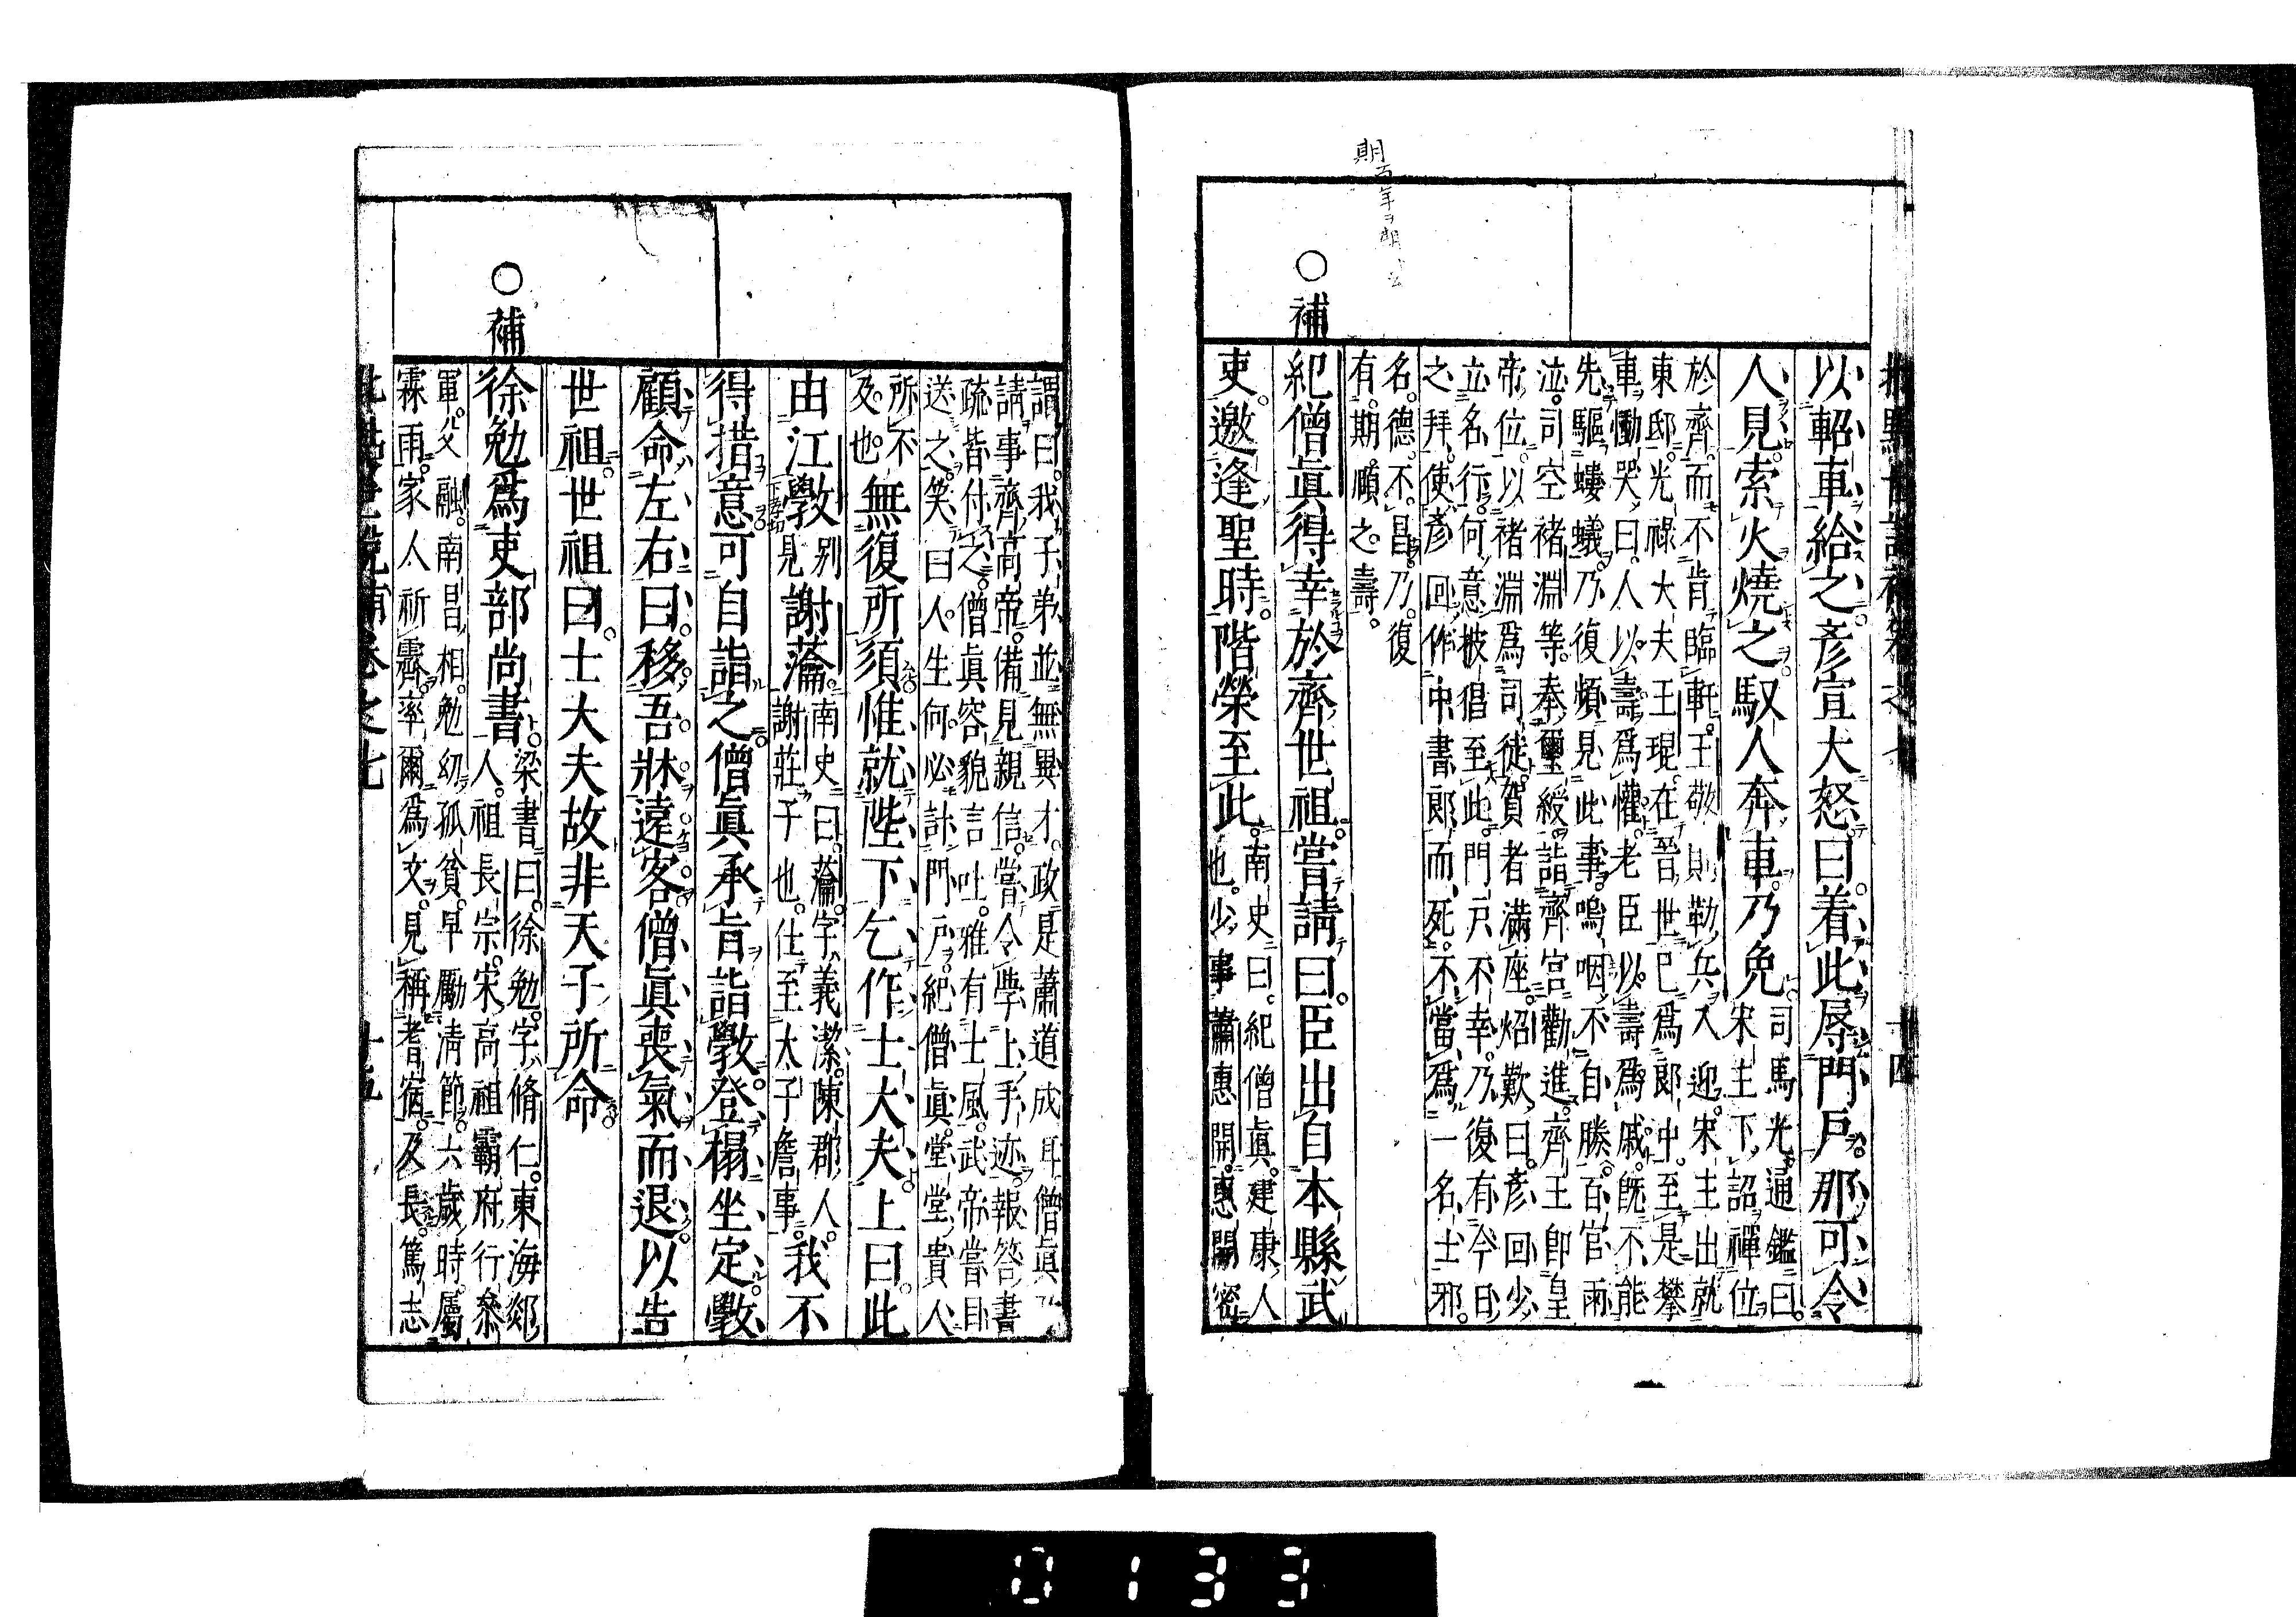 期百年ヲ期
以軺車給之彥宣大怒曰着此辱門戶那可令
人見索火燒之馭人奔車乃免
司馬光通鑑曰
宋主下詔禪位
於齊而不肯臨軒王敬則勒兵入迎宋主出就
東邸光祿大夫王琨在晉世已爲郎中至是攀
車慟哭曰人以壽爲懽老臣以壽爲戚旣不能
先驅螻蟻乃復頻見此事嗚咽不自勝百官雨
泣司空褚淵等奉璽綬詣齊宮勸進齊王卽皇
帝位以褚淵爲司徒賀者滿座炤歎曰彥回少
立名行何意披猖至此門戶不幸乃復有今日
之拜使彥回作中書郎而死不當爲一名士邪
名德不昌乃復
有期頤之壽
○補
紀僧眞得幸於齊世祖嘗請曰臣出自本縣武
吏邀逢聖時階榮至此
南史曰紀僧眞建康人
也少事蕭惠開惠開密
謂曰我子弟並無異才政是蕭道成耳僧眞乃
請事齊高帝備見親信嘗令學上手迹報答書
疏皆付之僧眞容貌言吐雅有士風武帝嘗目
送之笑曰人生何必計門戶紀僧眞堂堂貴人
所不
及也
無復所須惟就陛下乞作士大夫上曰此
由江斆
別見
謝瀹
南史曰瀹字義潔陳郡人
謝莊子也仕至太子詹事
我不
得措意可自詣之僧眞承旨詣斆登榻坐定斆
顧命左右曰移吾牀遠客僧眞喪氣而退以告
世祖世祖曰士大夫故非天子所命
○補
徐勉爲吏部尚書
梁書曰徐勉字脩仁東海郯
人祖長宗宋高祖霸府行參
軍父融南昌相勉幼孤貧早勵淸節六歲時屬
霖雨家人祈霽率爾爲文見稱耆宿及長篤志
0133